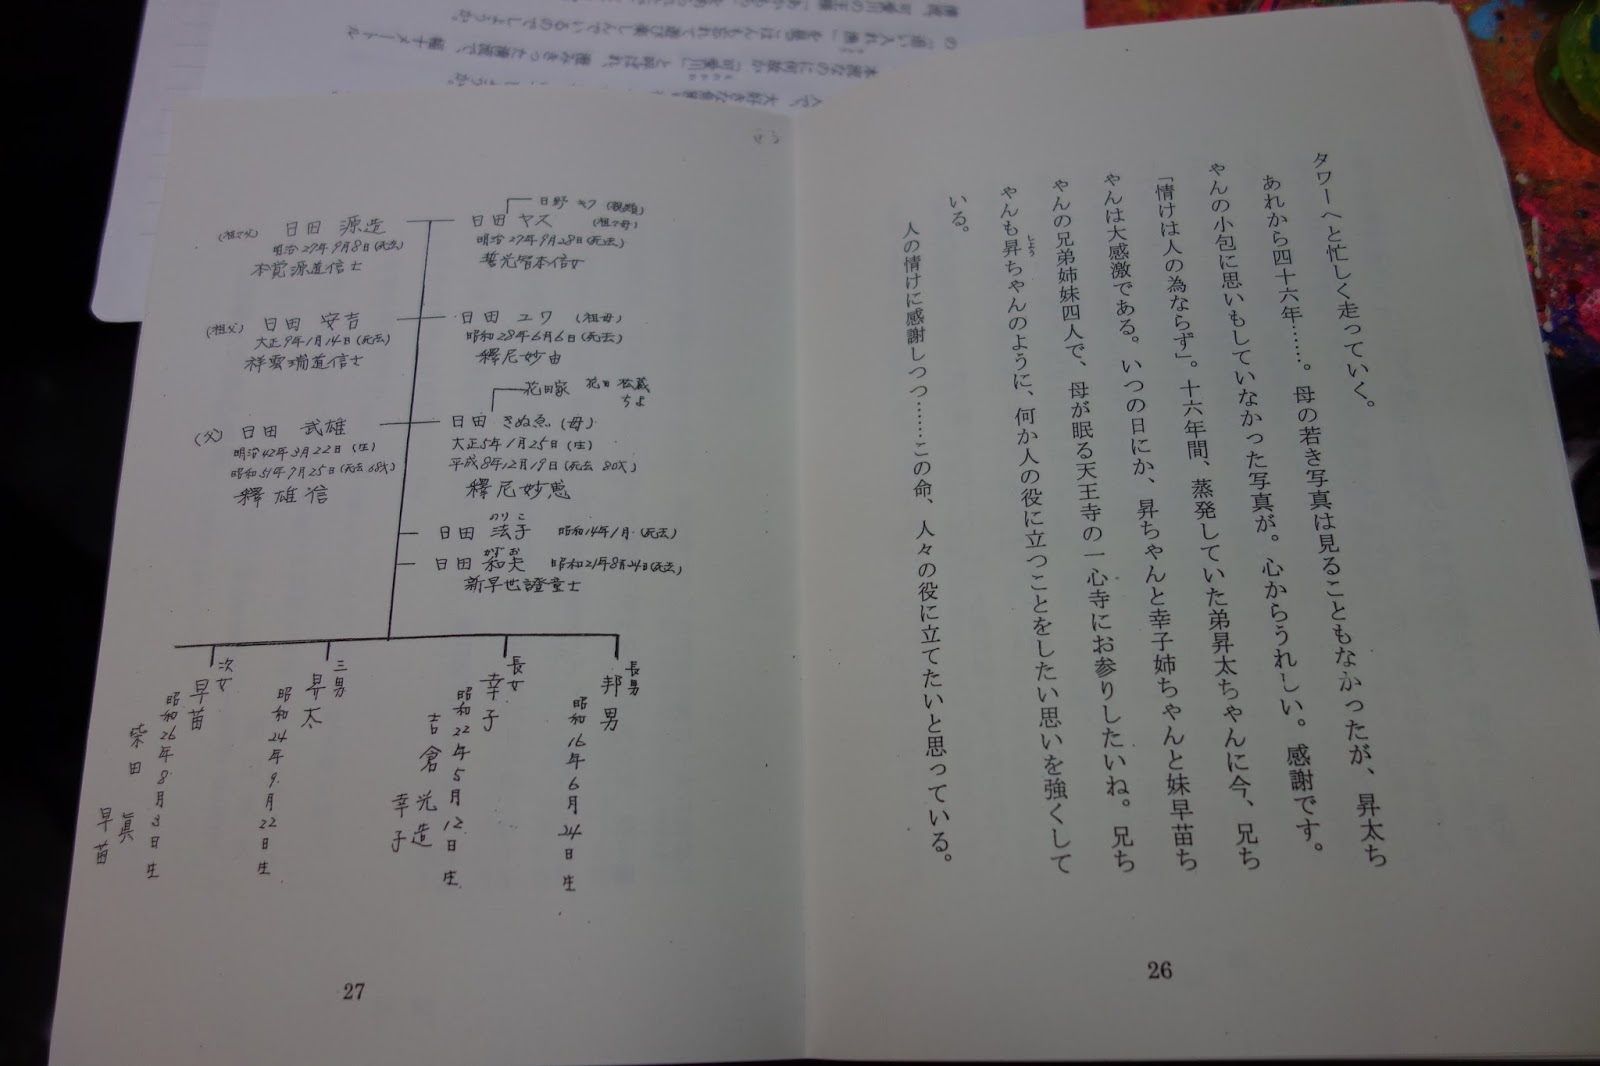 タワーへと忙しく走っていく。
あれから四十六年……。母の若き写真は見ることもなかったが、昇太ち
ゃんの小包に思いもしていなかった写真が。心からうれしい。感謝です。
「情けは人の為ならず」。十六年間、蒸発していた弟昇太ちゃんに今、兄ち
ゃんは大感激である。いつの日にか、昇ちゃんと幸子姉ちゃんと妹早苗ち
ゃんの兄弟姉妹四人で、母が眠る天王寺の一心寺にお参りしたいね。兄ち
ゃんも昇ちゃんのように、何か人の役に立つことをしたい思いを強くして
しょう
いる。
人の情けに感謝しつつ……この命、人々の役に立てたいと思っている。
26
日野
日田 源造
日田 ヤス
明治29年9月8日(死去)
明治29年9月28日(死去)
本覚源道信士
誓光智本信女
(祖父) 日田 安吉
日田 ユワ (祖母)
大正9年1月14日(死去)
昭和28年6月6日(死去)
祥雲瑞道信士
釋尼妙由
花田家 花田 松蔵
ちよ
(父) 日田 武雄
日田 きぬゑ (母)
明治42年3月22日(生)
大正5年1月25日(生)
昭和51年7月25日(死去 68才)
平成8年12月19日(死去 80才)
釋雄信
釋尼妙恵
のりこ
日田 法子 昭和14年1月(死去)
かずお
日田 和夫 昭和21年8月24日(死去)
新早世證童士
長男
邦男
昭和16年6月24日生
長女
幸子
昭和22年5月12日生
吉倉 光造
幸子
三男
昇太
昭和24年9月22日生
次女
早苗
昭和26年8月3日生
柴田 眞
早苗
27